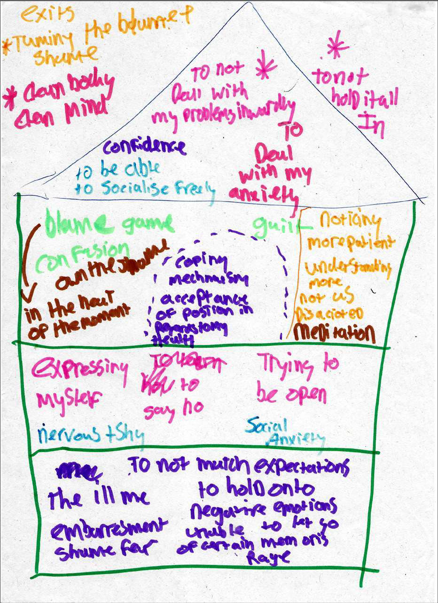 exits
* Turning the blame &
shame
* clean body
clean mind
To not *
Deal with
my problems inwardly
*
to not
hold it all
In
To
Deal
with my
anxiety
confidence
to be able
to Socialise freely
blame game
confusion
own the
in the heat
of the moment
coping
mechanism
acceptance
of position in
guilt
noticing
more patient
understanding
more
not as
Meditation
expressing
myself
to
say no
Trying to
be open
nervous + shy
Social
Anxiety
The ill me
embarrasment
shame fear
To not match expectations
to hold onto
negative emotions
unable to let go
of certain memoris
Rage